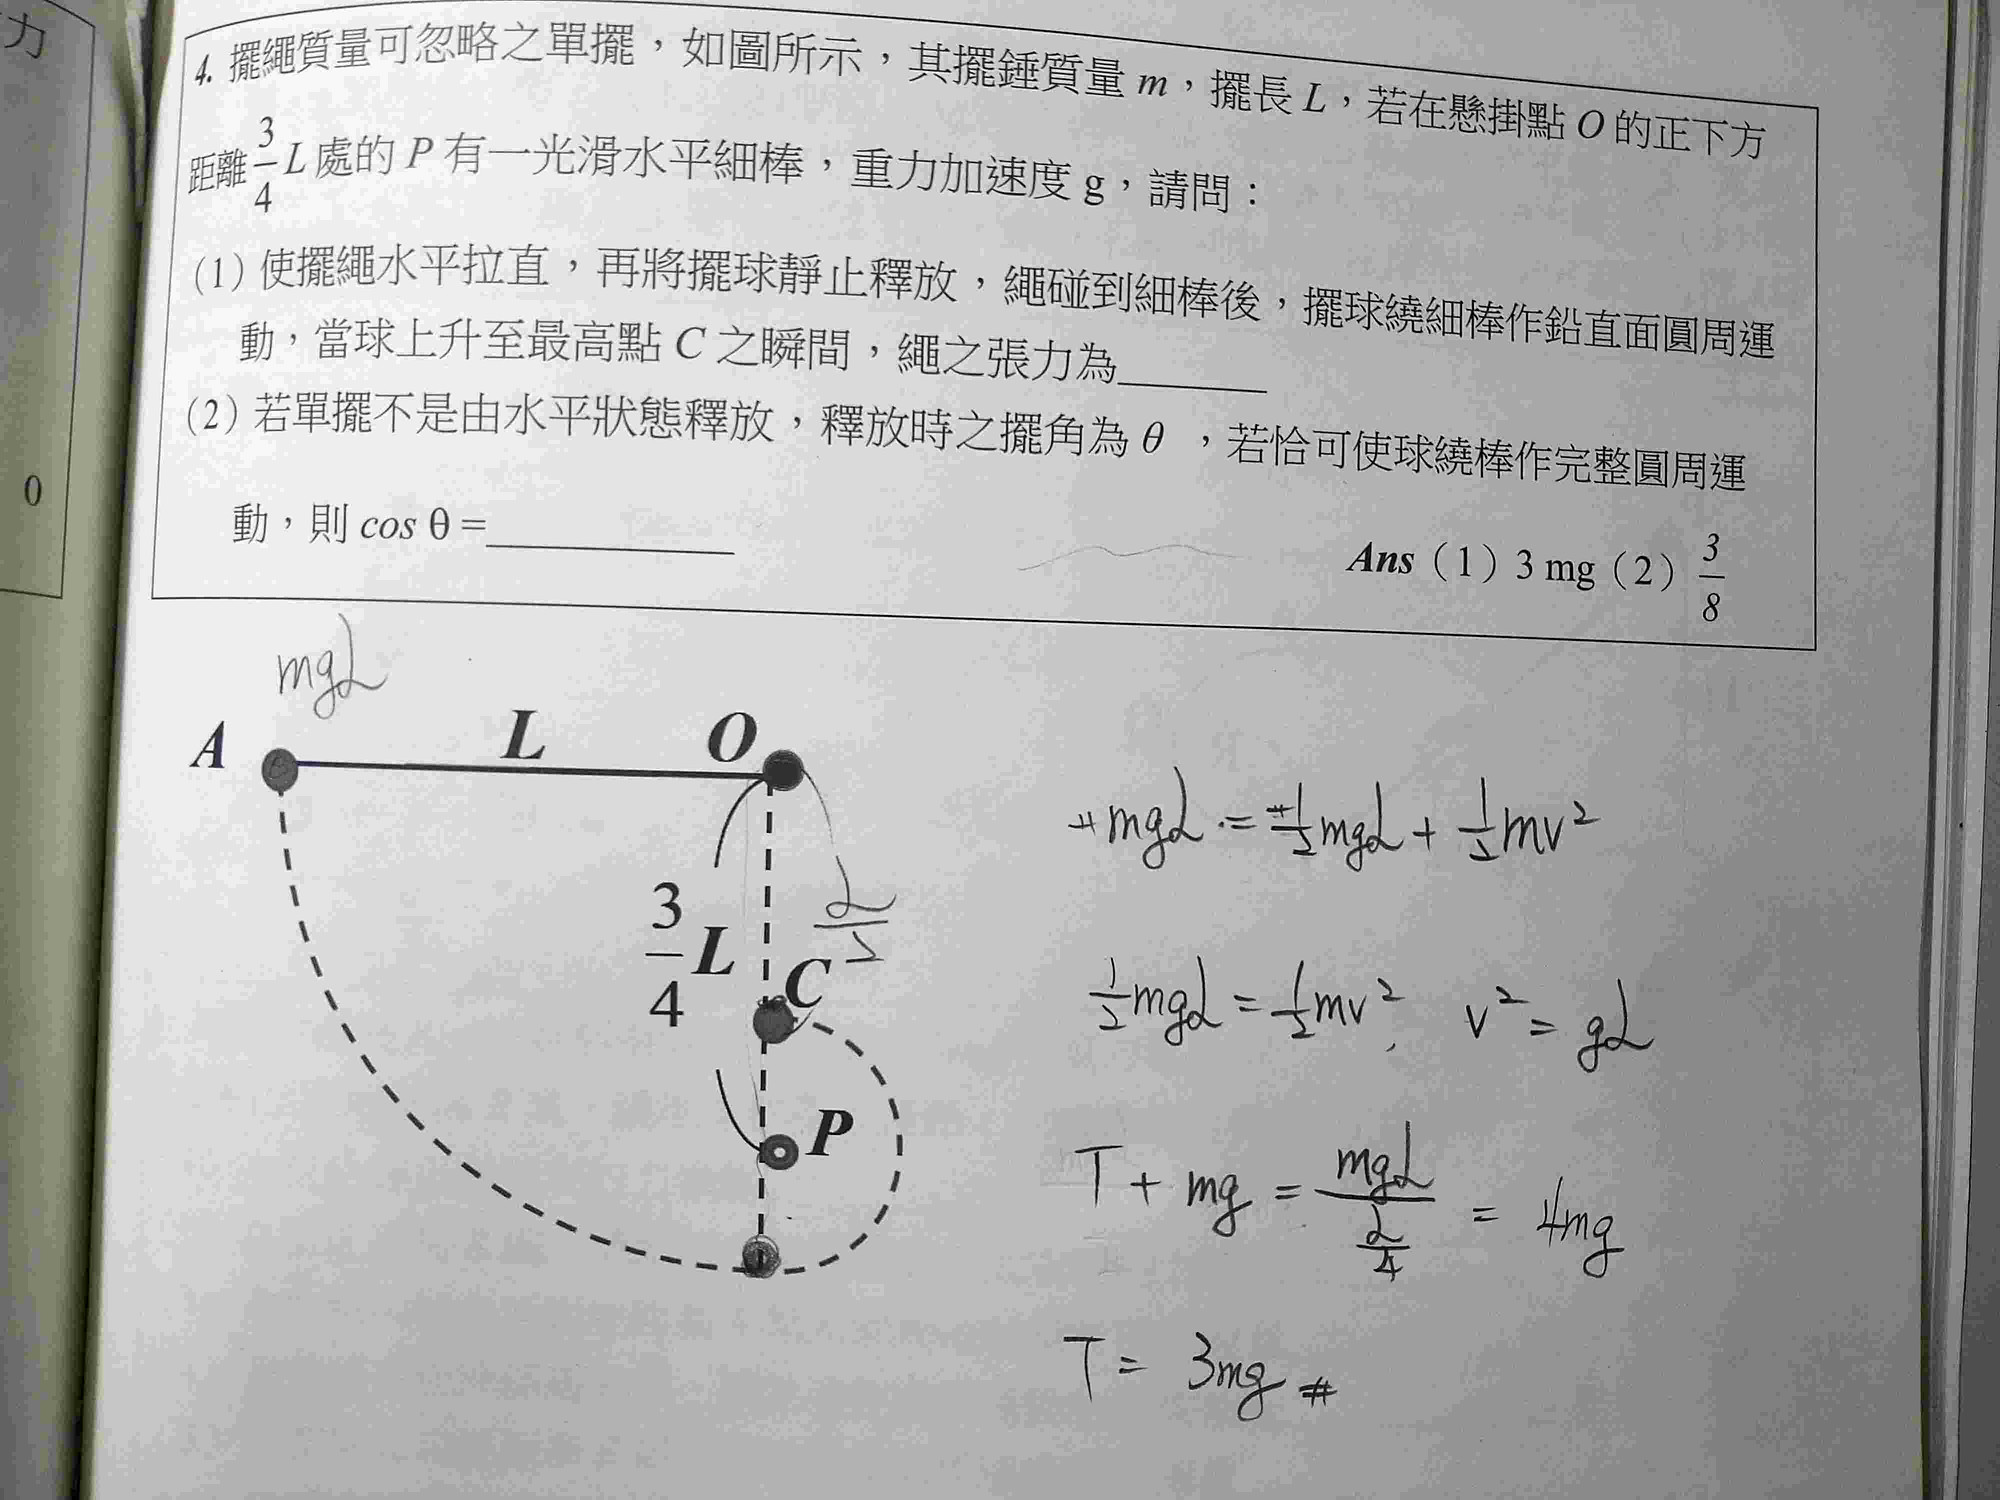 力
0
4. 擺繩質量可忽略之單擺，如圖所示，其擺錘質量 m，擺長 L，若在懸掛點 O 的正下方
距離 3/4 L 處的 P 有一光滑水平細棒，重力加速度 g，請問：
(1) 使擺繩水平拉直，再將擺球靜止釋放，繩碰到細棒後，擺球繞細棒作鉛直面圓周運
動，當球上升至最高點 C 之瞬間，繩之張力為______
(2) 若單擺不是由水平狀態釋放，釋放時之擺角為 θ ，若恰可使球繞棒作完整圓周運
動，則 cos θ =__________
Ans (1) 3 mg (2) 3/8
mgL
A
L
O
3/4 L
L/2
C
P
mgL = 1/2 mgL + 1/2 mv²
1/2 mgL = 1/2 mv², v² = gL
T + mg = mgL / (L/4) = 4mg
T = 3mg #